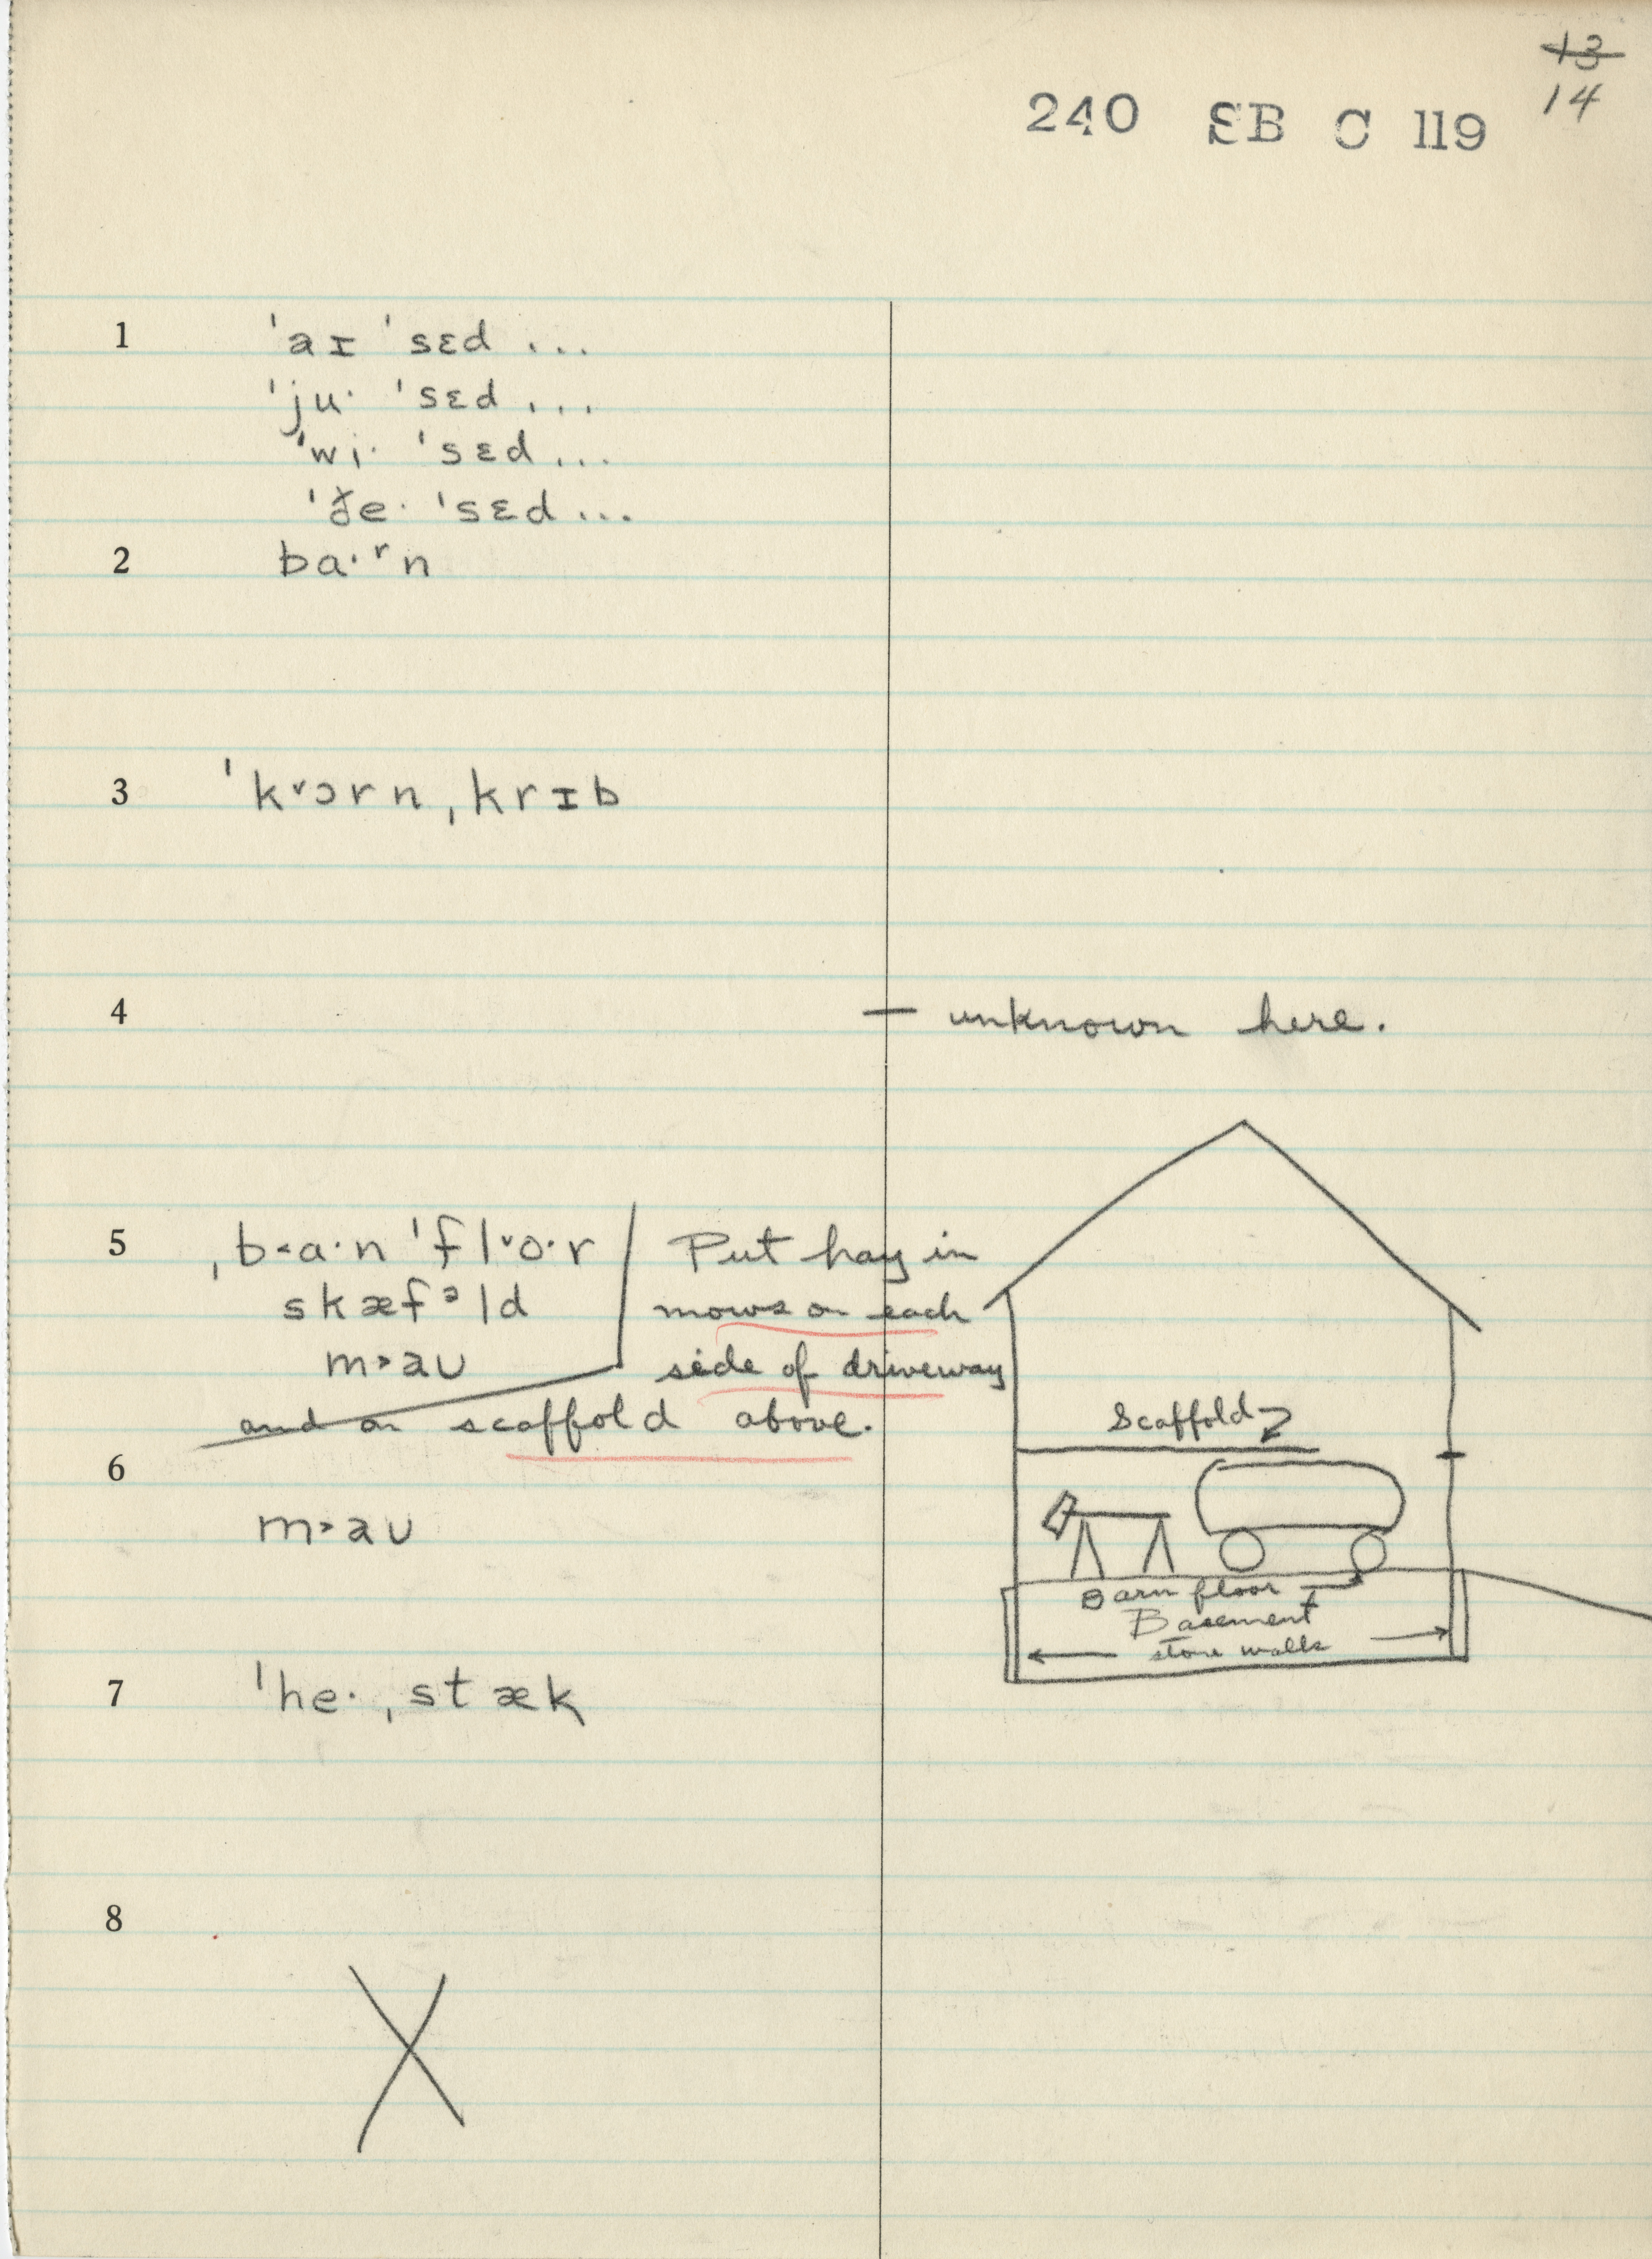 ~~13~~
14
240 SB C 119
1 ˈaɪ ˈsɛd ...
ˈju· ˈsɛd ...
ˈwi· ˈsɛd ...
ˈðe· ˈsɛd ...
2 ba·ʳn
3 ˈk˅ɔrn ˌkrɪb
4 — unknown here.
5 ˌb˂a·n ˈfl˅o·r
skæfᵊld
m˃aʊ
Put hay in
mows on each
side of driveway
and on scaffold above.
6 m˃aʊ
7 ˈhe· ˌstæk
8 X
Scaffold
Barn floor
Basement
stone walls